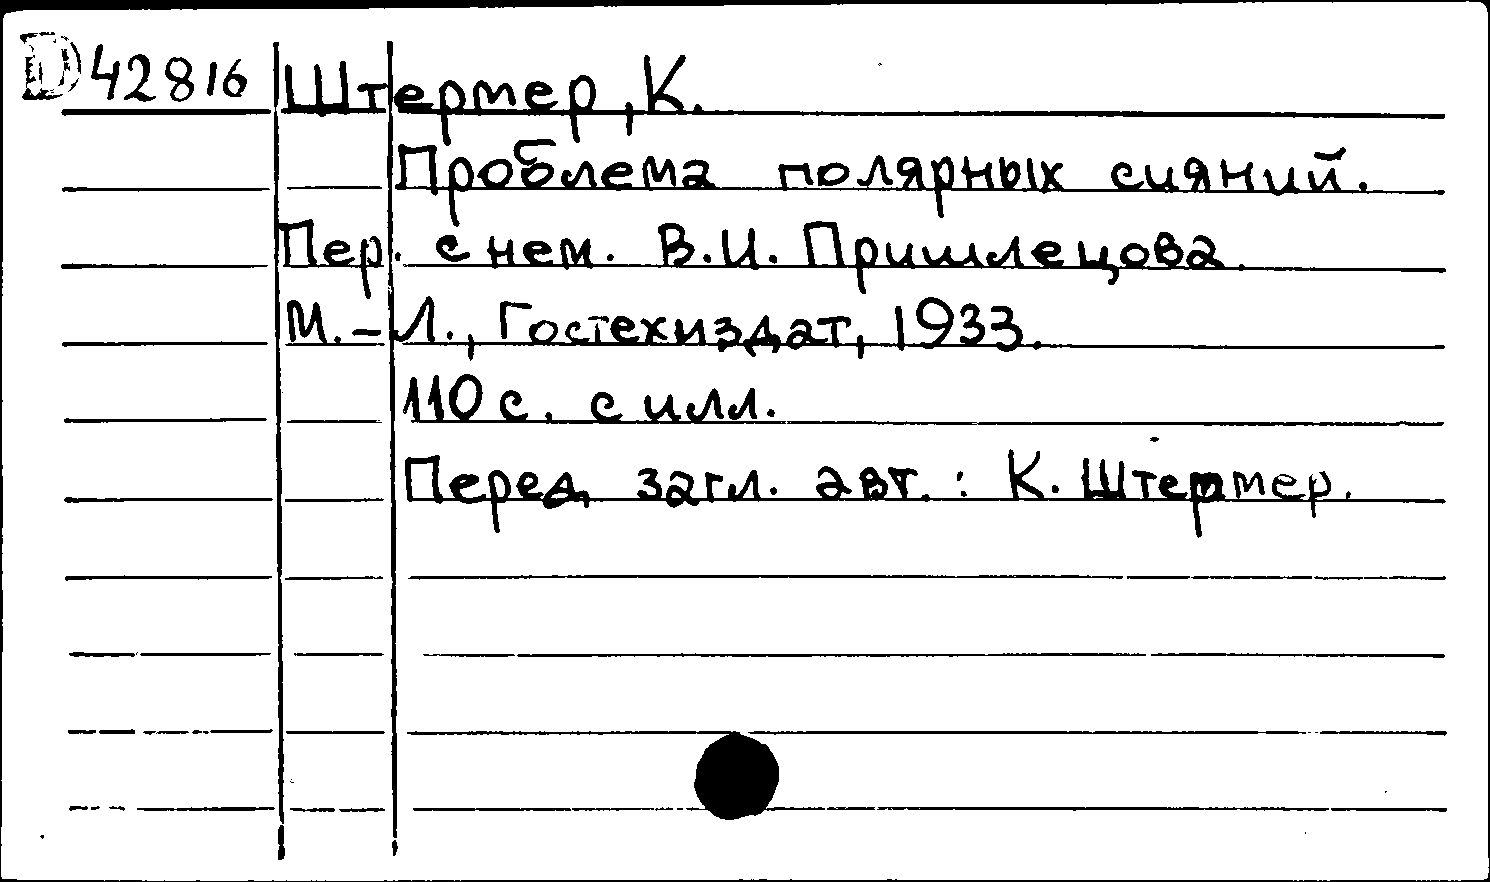 D42816 Штермер, К.
Проблема полярных сияний.
Пер. с нем. В.И. Пришлецова.
М.-Л., Гостехиздат, 1933.
110 с. с илл.
Перед загл. авт.: К. Штермер.